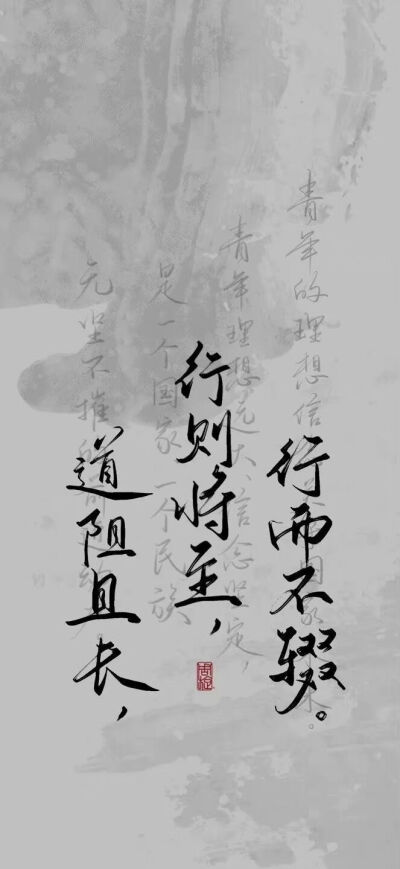 道阻且长，
行则将至，
行而不辍。
青年的理想信国家来。
青年理想远大、信念坚定，
是一个国家一个民族
无坚不摧前